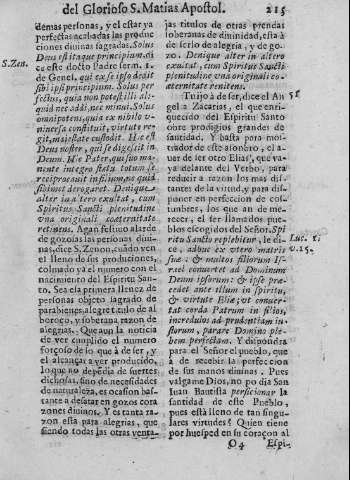 del Glorioso S. Matias Apostol. 215
demas personas, y el estar ya
perfectas acabadas las produc
ciones divinas sagradas. Solus
Deus est itaque principium. di
S. Zen.
ce este docto Padre serm. 1.
de Genes. qui ex se ipso dedit
sibi ipsi principium. Solus per
fectus, quia non potest illi ali-
quid nec addi, nec minui. Solus
omnipotens, quia ex nihilo v-
niversa constituit, virtute re-
git, majestate custodit. Hic est
Deus noster, qui se digessit in
Deum. Hic Pater, qui suo ma-
nente integro statu totum se
reciprocavit in filium, ne quid
sibimet derogaret. Denique
alter in altero exultat, cum
Spiritus Sancti plenitudine
vna originali coæternitate
retinens. Agan festivo alarde
de gozo las personas divi-
nas, dice S. Zenon, cuando ven
el lleno de sus produciones,
colmado ya el numero con el
nacimiento del Espiritu San-
to. Sea el la primera llene z
de personas objeto sagrado de
parabienes, al gre titulo de al
boroço, y soberana razon de
alegrias. Que aun la noticia
de ver cumplido el numero
forçoso de lo que à de ser, y
el alcançar a ver producido,
lo que no dependia de suertes
dichosas, sino de necesidades
de naturaleza, es ocasion bas-
tante a desatar en gozos cora
zones divinos. Y es tanta ra-
zon esta para alegrias, que
siendo todas las otras venta-
jas titulos de otras prendas
soberanas de divinidad, esta à
de serlo de alegria, y de go-
zo. Denique alter in altero
exultat, cum Spiritus Sancti
plenitudine vna originali co-
æternitate renitens.
Tu ijo à de ser, dice el An
gel a Zacarias, el que enri-
quecido del Espiritu Santo
obre prodigios grandes de
santidad. Y basta para mos-
trador de este asombro, el a-
uer de ser otro Elias, que va-
ya delante del Verbo, para
reducir a razon los mas dis-
tantes de la virtud, y para dis-
poner en perfeccion de cos-
tumbres, los que an de me-
recer, el ser llamados pue-
blos escogidos del Señor. Spi
ritu Sancto replebitur, le di-
Luc. 1.
ce, adhuc ex vtero matris
v. 15.
suæ: & multos filiorum Is-
rael convertet ad Dominum
Deum ipsorum: & ipse præ-
cedet ante illum in spiritu,
& virtute Eliæ, vt conuer-
tat corda Patrum in filios,
incredulos ad prudentiam iu-
storum, parare Domino ple-
bem perfectam. Y dispondra
para el Señor el pueblo, que
a de recebir la perfeccion
de sus manos divinas. Pues
valgame Dios, no podia San
Juan Bautista persicionar la
santidad de este Pueblo,
pues està lleno de tan singu-
lares virtudes? Quien tiene
por huesped en su coraçon al
O 4 Espi-